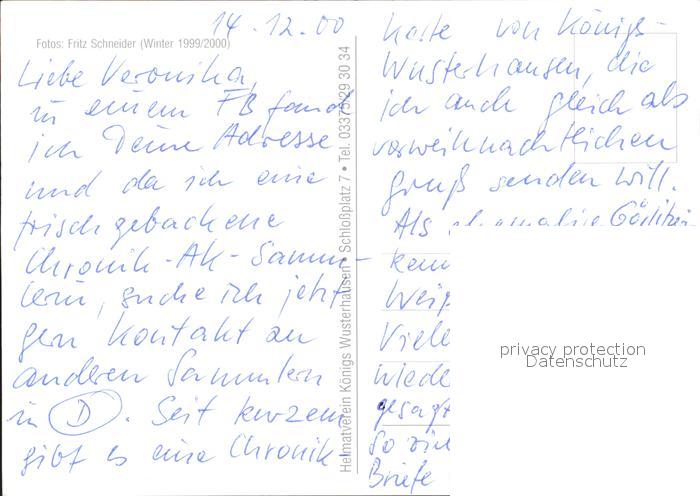 14.12.00
Fotos: Fritz Schneider (Winter 1999/2000)
Liebe Veronika,
in einem FB fand
ich Deine Adresse
und da ich eine
frischgebackene
Chronik-AK-Samm-
lerin, suche ich jetzt
gern Kontakt zu
anderen Sammlern
in D. Seit kurzem
gibt es eine Chronik-
Heimatverein Königs Wusterhausen • Schloßplatz 7 • Tel. 03375/29 30 34
karte von Königs-
Wusterhausen, die
ich auch gleich als
vorweihnachtlichen
gruß senden will.
Als ehemalige Görlitze
kenn
Weiß
Viele
wiede
gesagt
So
Briefe
privacy protection
Datenschutz